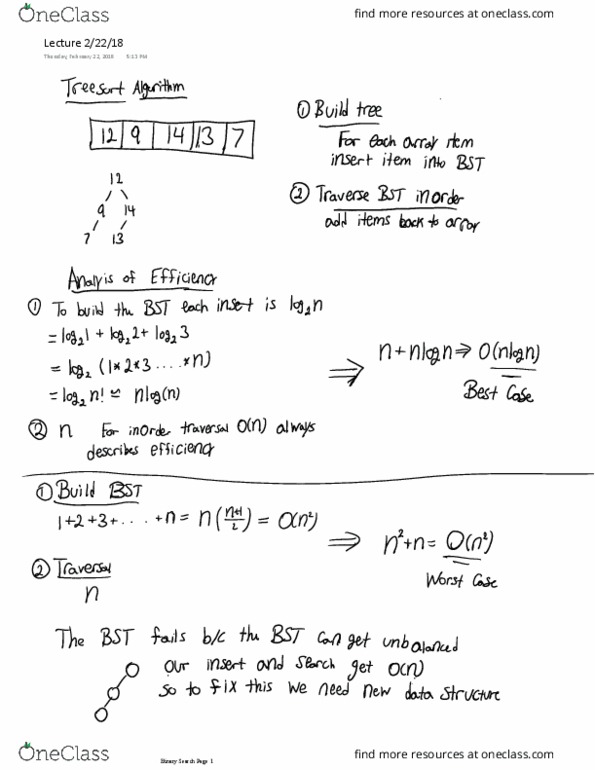 OneClass
find more resources at oneclass.com
Lecture 2/22/18
Thursday, February 22, 2018 5:13 PM
Treesort Algorithm
12 9 14 13 7
12
9 14
7 13
① Build tree
For each array item
insert item into BST
② Traverse BST inorder
add items back to array
Analysis of Efficiency
① To build the BST each insert is log₂n
= log₂1 + log₂2 + log₂3
= log₂ (1*2*3 ..... *n)
= log₂ n! ≃ nlog(n)
② n For inorder traversal O(n) always
describes efficiency
⇒ n + nlogn ⇒ O(nlogn)
Best Case
① Build BST
1+2+3+ . . . . +n = n(n+1/2) = O(n²)
② Traversal
n
⇒ n²+n = O(n²)
Worst Case
The BST fails b/c the BST can get unbalanced
our insert and search get O(n)
so to fix this we need new data structure
Binary Search Page 1
OneClass
find more resources at oneclass.com